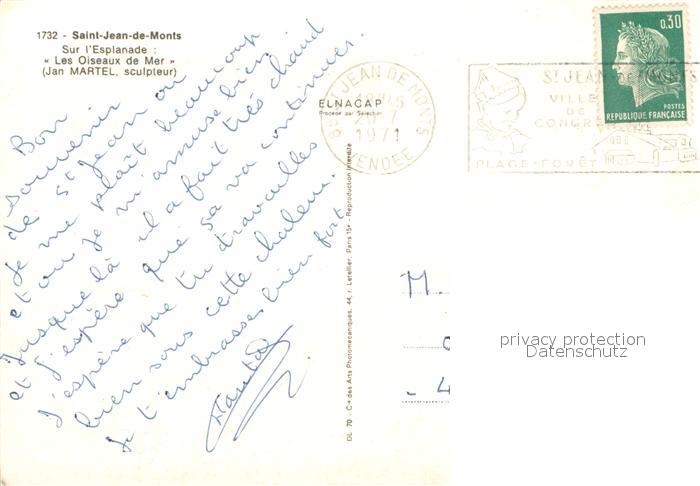 1732 - Saint-Jean-de-Monts
Sur l'Esplanade :
« Les Oiseaux de Mer »
(Jan MARTEL, sculpteur)
Bon
souvenir
de St Jean où
Je me plaît beaucoup
et où je m'amuse bien
Jusque là il a fait très chaud
et J'espère que sa va continuer.
J'espère que tu travailles
bien sous cette chaleur.
Je t'embrasses bien fort.
ELNACAP
Procédé par Sélection
ST JEAN DE MONTS
1971
VENDEE
ST JEAN DE MONTS
VILLE
DE
CONGRES
PLAGE-FORÊT
0,30
POSTES
REPUBLIQUE FRANÇAISE
DL 70 - Cie des Arts Photomécaniques, 44, r. Letellier, Paris 15e - Reproduction interdite
M.
- 4
privacy protection
Datenschutz